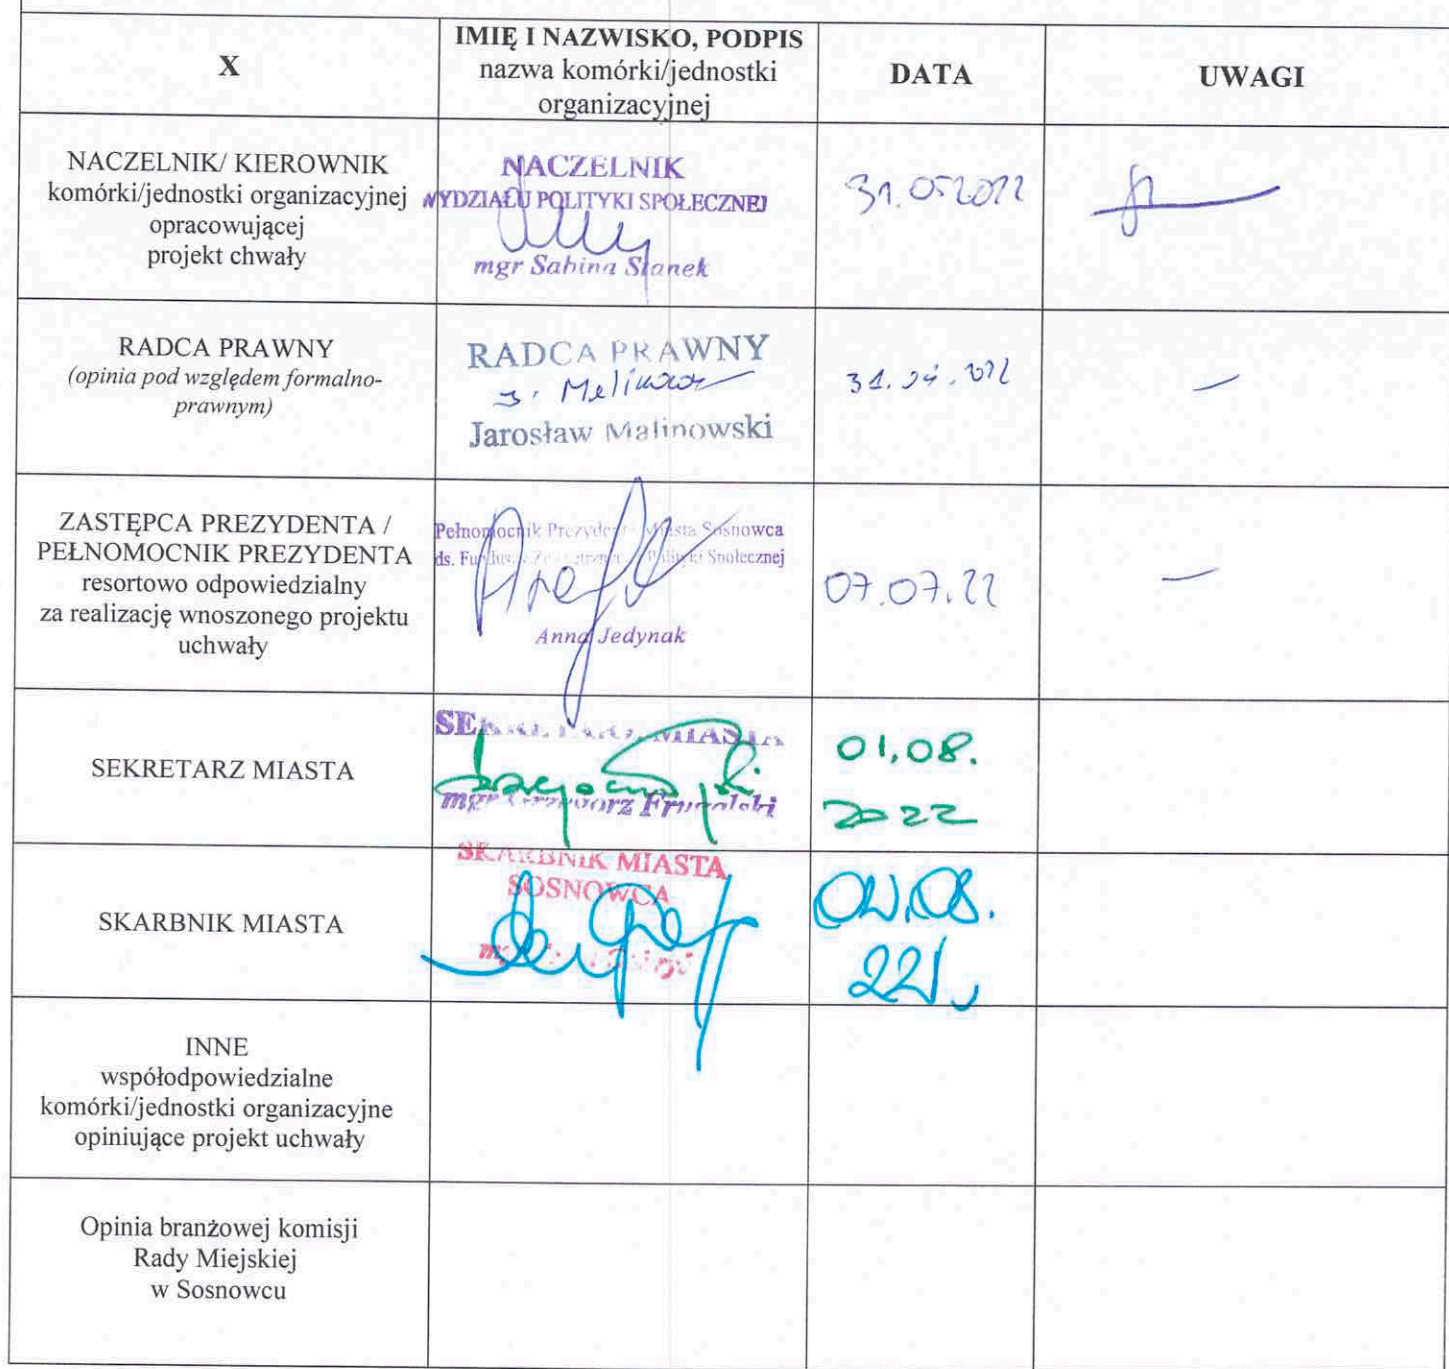 X
IMIĘ I NAZWISKO, PODPIS
nazwa komórki/jednostki
organizacyjnej
DATA
UWAGI
NACZELNIK/ KIEROWNIK
komórki/jednostki organizacyjnej
opracowującej
projekt chwały
NACZELNIK
WYDZIAŁU POLITYKI SPOŁECZNEJ
mgr Sabina Stanek
31.05.2022
RADCA PRAWNY
(opinia pod względem formalno-
prawnym)
RADCA PRAWNY
Jarosław Malinowski
ZASTĘPCA PREZYDENTA /
PEŁNOMOCNIK PREZYDENTA
resortowo odpowiedzialny
za realizację wnoszonego projektu
uchwały
Pełnomocnik Prezydenta Miasta Sosnowca
ds. Społecznej
Anna Jedynak
07.07.22
SEKRETARZ MIASTA
SEKRETARZ MIASTA
mgr Grzegorz
01.08.
2022
SKARBNIK MIASTA
SKARBNIK MIASTA
SOSNOWCA
02.08.
22r.
INNE
współodpowiedzialne
komórki/jednostki organizacyjne
opiniujące projekt uchwały
Opinia branżowej komisji
Rady Miejskiej
w Sosnowcu